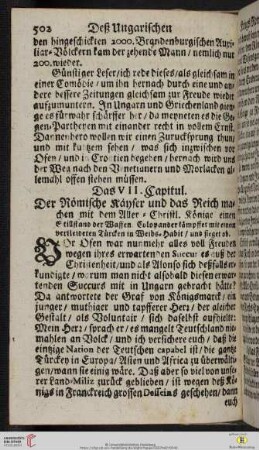 502 Deß Ungarischen
den hingeschickten 2000. Brandenburgischen Auxi-
liar-Völckern kam der zehende Mann / nemlich nur
200. wieder.
Günstiger Leser / ich rede dieses / als gleichsam in
einer Comödie / um ihn hernach durch eine und an-
dere bessere Zeitungen gleichsam zur Freude wieder
aufzumuntern. In Ungarn und Griechenland gieng
es fürwahr schärffer her / da meyneten es die Ge-
gen-Partheyen mit einander recht in vollem Ernst.
Dannenhero wollen wir einen Zurucksprung thun /
und mit kurtzem sehen / was sich inzwischen vor
Ofen / und in Croatien begeben / hernach wird uns
der Weg nach den Venetianern und Morlacken al-
lemahl offen stehen müssen.
Das VII. Capittul.
Der Römische Käyser und das Reich ma-
chen mit dem Aller-Christl. Könige einen
Stillstand der Waffen. kämpffet mit einem
verkleideten Türcken in Weibs-Habit / und sieget ob.
VOr Ofen war nunmehr alles voll Freuden
wegen ihres erwartenden Succurses auß der
Christenheit / und als Alonso sich deßfalls er-
kundigte / warum man nicht alsobald diesen erwar-
tenden Succurs mit in Ungarn gebracht hätte?
Da antwortete der Graf von Königsmarck / ein
junger / muthiger und tapfferer Herr / der gleicher
Gestalt / als Voluntair / sich daselbst aufhielte:
Mein Herr / sprach er / es mangelt Teutschland nie-
mahlen an Volck / und ich versichere euch / daß die
eintzige Nation der Teutschen capabel ist / die gantze
Türckey in Europa / Asien und Africa zu überwälti-
gen / wann sie einig wäre. Daß aber so viel von unse-
rer Land-Militz zurück geblieben / ist wegen deß Kö-
nigs in Franckreich grossen Desseins geschehen / dann
euch